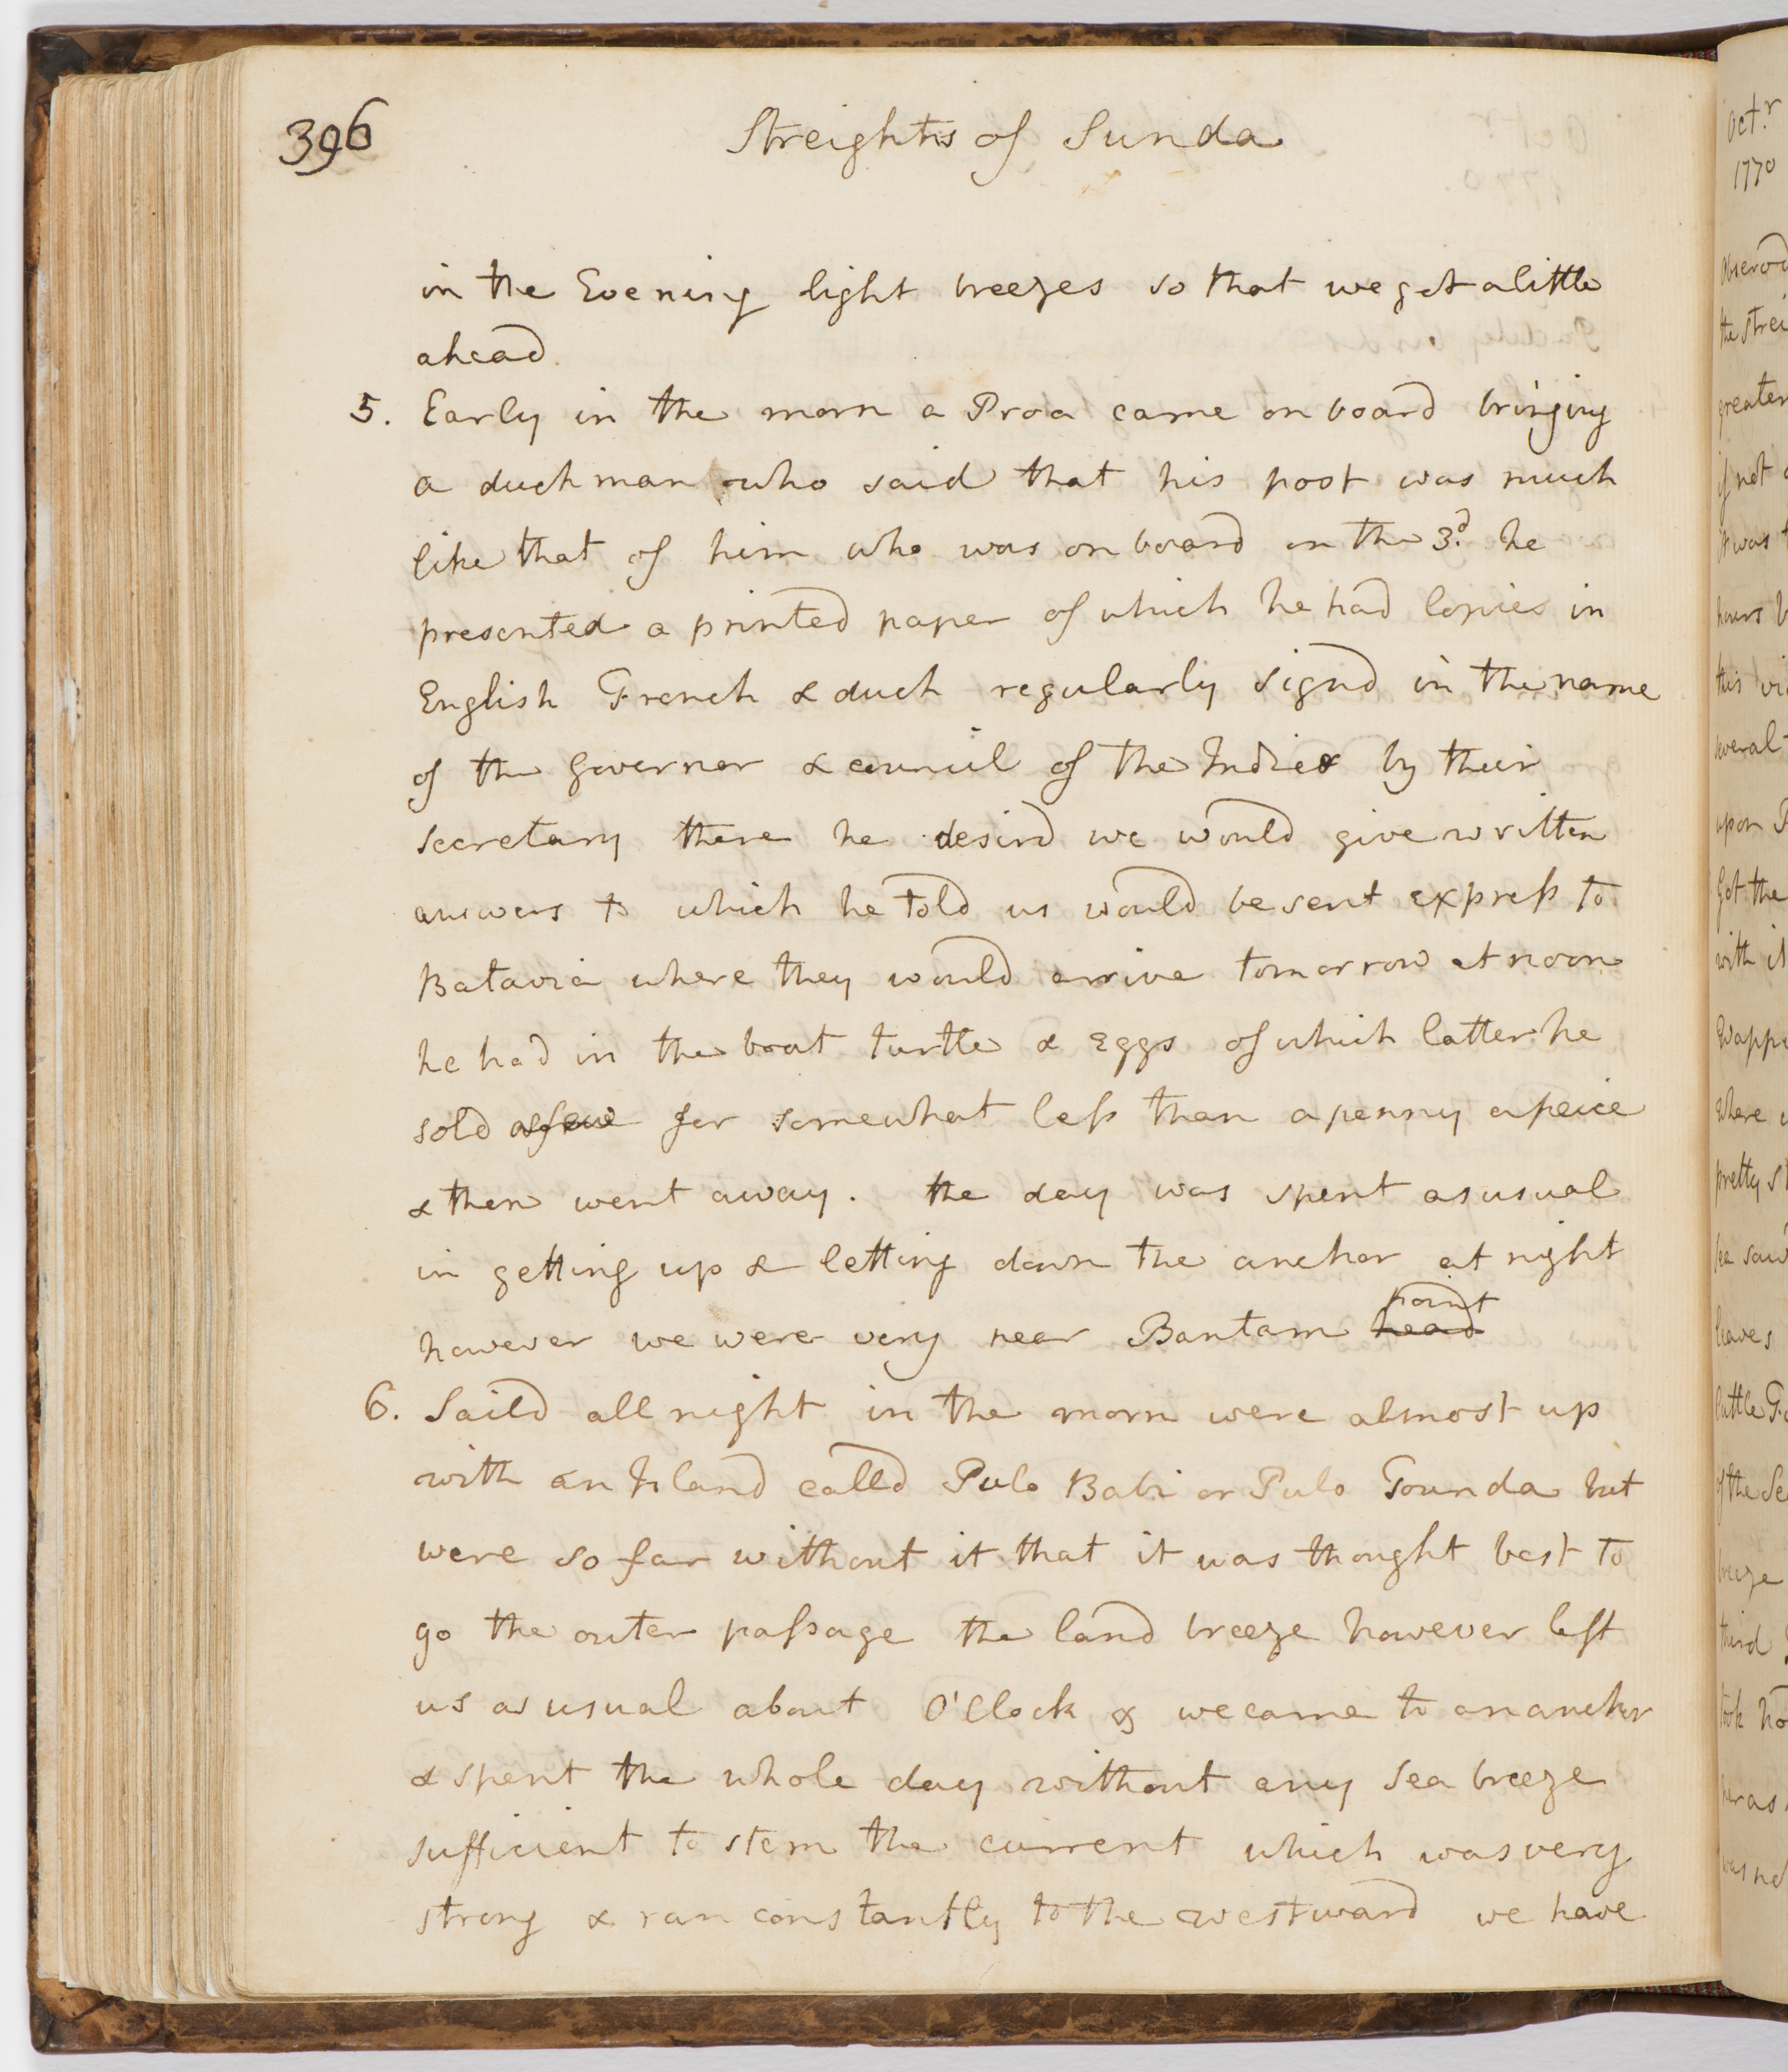 396
Streights of Sunda
in the Evening light breezes so that we get a little
ahead.
5. Early in the morn a Proa came on board bringing
a duch man who said that his post was much
like that of him who was on board on the 3d. he
presented a printed paper of which he had Copies in
English French & duch regularly signd in the name
of the Governer & council of the Indies by their
secretary there he desird we would give written
answers to which he told us would be sent express to
Batavia where they would arrive tomorrow at noon
he had in the boat turtle & Eggs of which latter he
sold a few for somewhat less than a penny a peice
& then went away. the day was spent as usual
in getting up & letting down the anchor at night
however we were very near Bantam head point
6. Saild all night in the morn were almost up
with an Island calld Pulo Babi or Pulo Tounda but
were so far without it that it was thought best to
go the outer passage the land breeze however left
us as usual about O'Clock & we came to an anchor
& spent the whole day without any Sea breeze
sufficient to stem the current which was very
strong & ran constantly to the westward we have
Octr
1770
the strei
greater
if not
it was
hours
this
several
upon
Got the
with it
where
pretty
saw
leaves
little
of the Se
breeze
third
took no
her as
was no